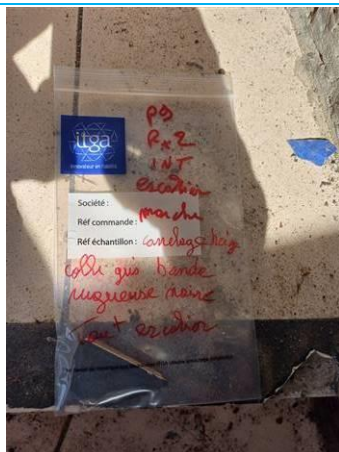 P9
R+2
INT
escalier
itga
Société :
Réf commande : marche
Réf échantillon : carrelage beige
colle gris bande
rugueuse noire
escalier